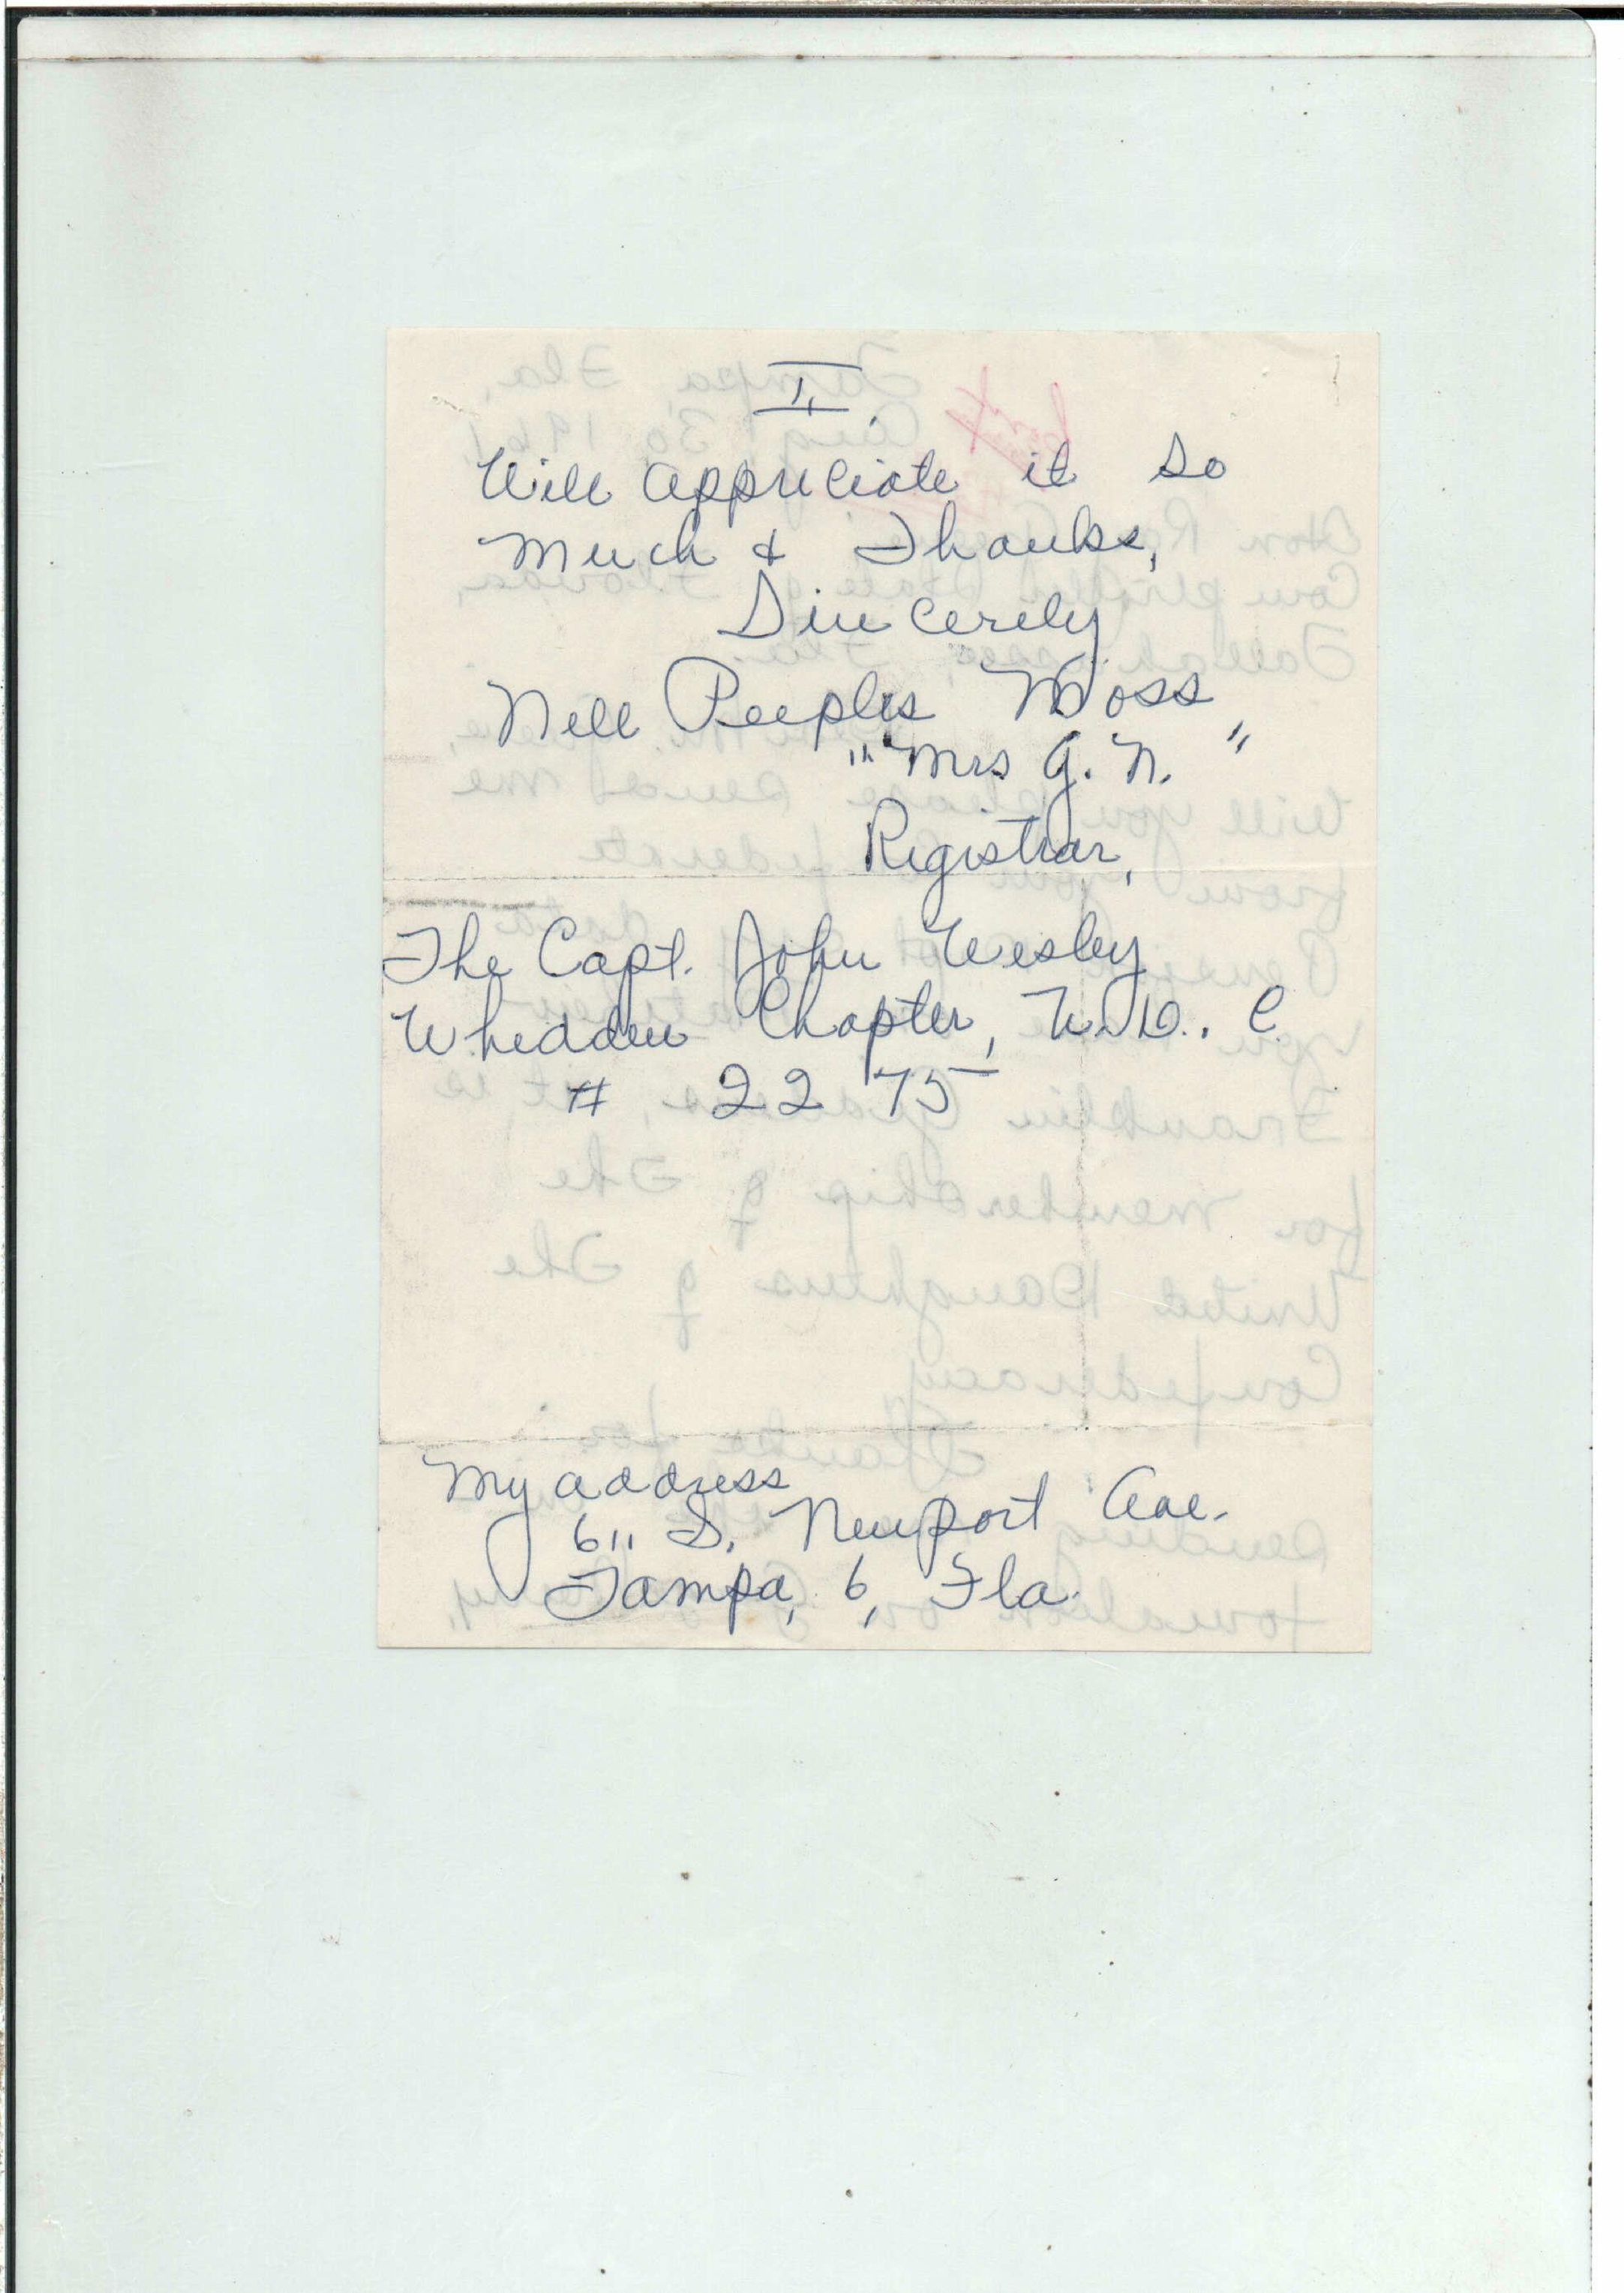 I,
Will appreciate it so
Much & Thanks,
Sincerely
Nell Peeples Moss
"Mrs G. N."
Registrar,
The Capt. John Wesley
Whidden Chapter, U. D. C
# 2275
My address
611 S. Newport Ave.
Tampa, 6, Fla.